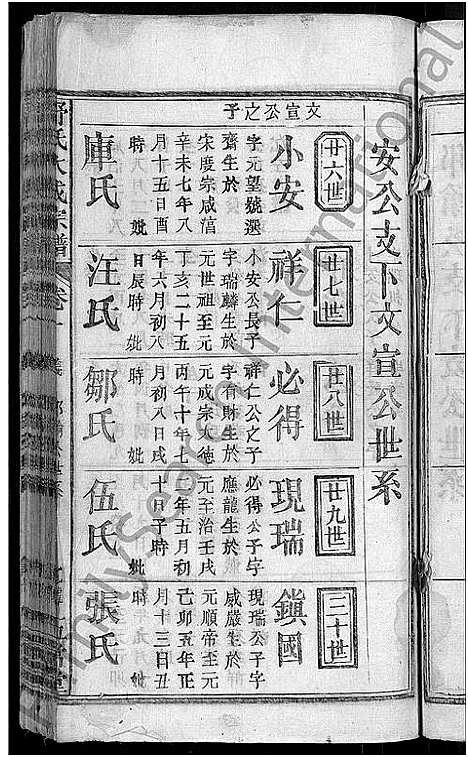 安公支下文宣公世系
文宣公之子
廿六世
小安
字元望號選
齋生於
宋度宗咸淳
辛未七年八
月十五日酉
時 妣
庫氏
廿七世
祥仁
小安公長子
字瑞麟生於
元世祖至元
丁亥二十五
年六月初八
日辰時 妣
汪氏
廿八世
必得
祥仁公之子
字有財生於
元成宗大德
丙午十年七
月初八日戌
時 妣
鄒氏
廿九世
現瑞
必得公子字
應龍生於
元至治壬戌
二年五月初
十日子時
妣
伍氏
三十世
鎮國
現瑞公子字
威嚴生於
元順帝至元
己卯五年正
月十三日丑
時 妣
張氏
舒氏大成宗譜 卷
FamilySearch International